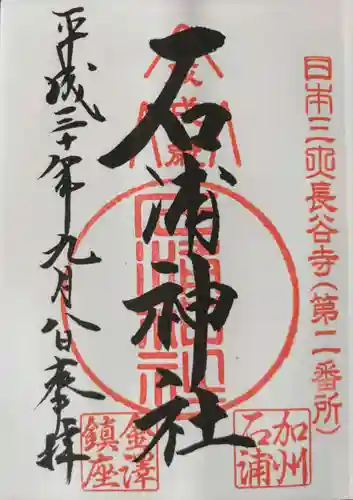 日本三大長谷寺(第二番所)
石浦神社
平成三十年九月八日奉拝
加州
石浦
金澤
鎮座